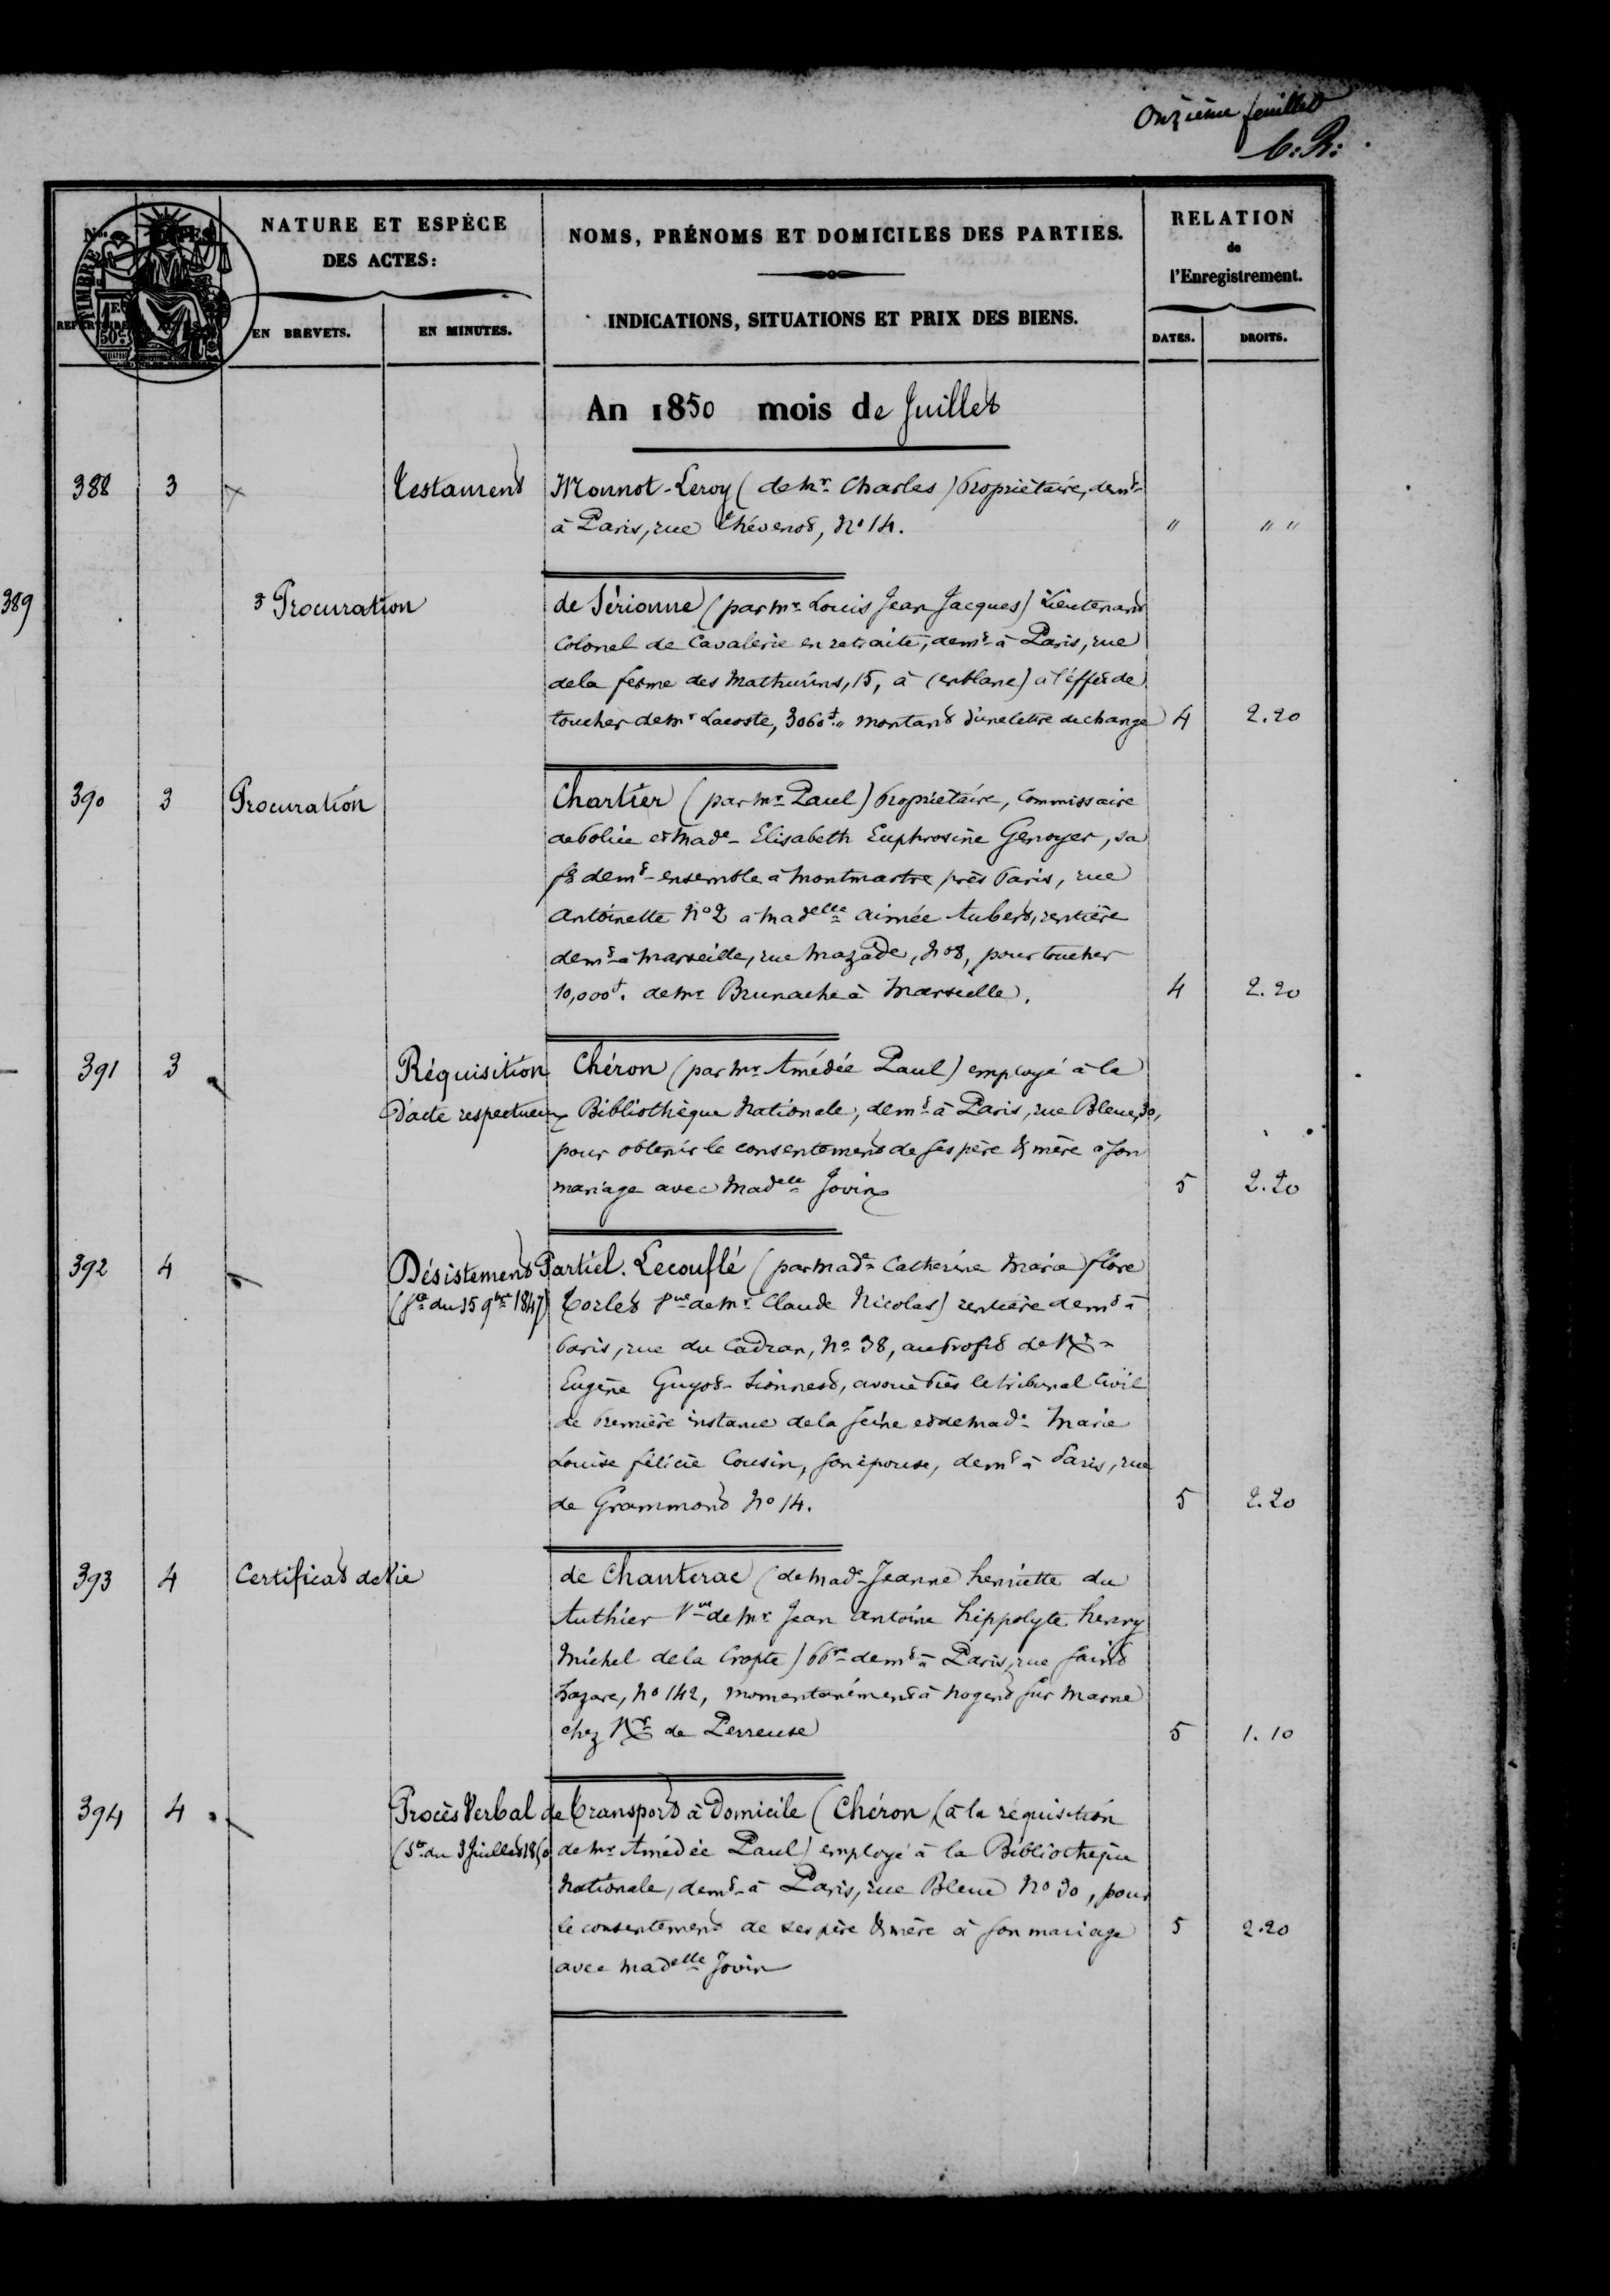 Onzième feuillet
C. R.
Nos
NATURE ET ESPÈCE
DES ACTES:
NOMS, PRÉNOMS ET DOMICILES DES PARTIES.
INDICATIONS, SITUATIONS ET PRIX DES BIENS.
RELATION
de
l'Enregistrement.
TIMBRE
1F.
50c.
EN BREVETS.
EN MINUTES.
DATES.
DROITS.
An 1850 mois de Juillet
388 3 Testament Monnot-Leroy (de Mr. Charles) Propriétaire, demt.
à Paris, rue Thévenot, No 14. " " "
389 3 Procuration de Sérionne (par Mr. Louis Jean Jacques) Lieutenant
Colonel de Cavalerie en retraite, demt. à Paris, rue
de la ferme des Mathurins, 15, à (en blanc) à l'effet de
toucher de Mr Lacoste, 3060f. " montant d'une lettre de change 4 2.20
390 3 Procuration Chartier (par Mr. Paul) Propriétaire, Commissaire
de Police et Made. Elisabeth Euphrosine Genoyer, sa
fe demt. ensemble à Montmartre près Paris, rue
Antoinette No 2 à Madelle Aimée Aubert, rentière
demt. à Marseille, rue Mazade, No 8, pour toucher
10,000f. de Mr. Brunache à Marseille. 4 2.20
391 3 Réquisition Chéron (par Mr. Amédée Paul) employé à la
d'acte respectueux Bibliothèque Nationale, demt. à Paris, rue Bleue, 30,
pour obtenir le consentement de ses père & mère à son
mariage avec Madelle Jovin 5 2.20
392 4 Désistement Partiel. Lecouflé (par Made. Catherine Marie flore
(Ste du 15 9bre 1847) Torlet Vve de Mr. Claude Nicolas) rentière demt. à
Paris, rue du Cadran, No. 38, au Profit de Mr.
Eugène Guyot-Sionnest, avoué Près le tribunal Civil
de Première instance de la Seine et de Made. Marie
Louise félicie Cousin, son épouse, demt. à Paris, rue
de Grammont No 14. 5 2.20
393 4 Certificat de Vie de Chanterac (de Made. Jeanne henriette du
Authier Vve de Mr. Jean Antoine hippolyte henry
Michel de la Cropte) demt. à Paris, rue Saint
Lazare, No 142, momentanément à Nogent sur Marne
chez Mr. de Perreuse 5 1.10
394 4 Procès Verbal de transport à Domicile (Chéron (à la réquisition
(Ste du 3 Juillet 1850 de Mr. Amédée Paul) employé à la Bibliothèque
Nationale, demt. à Paris, rue Bleue No 30, pour
le consentement de ses père & mère à son mariage 5 2.20
avec Madelle Jovin